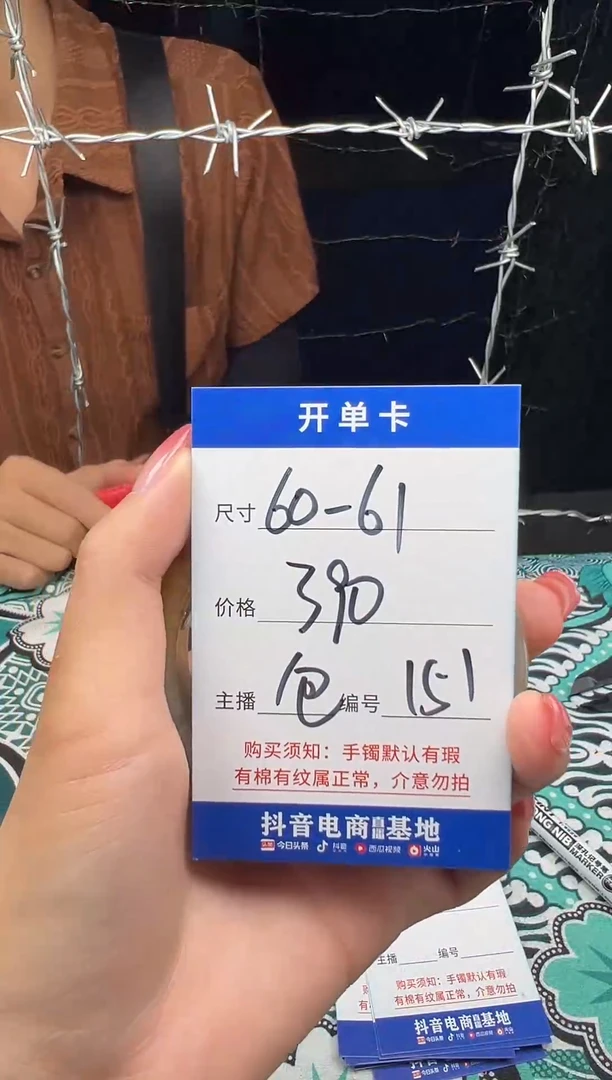 开单卡
尺寸 60-61
价格 390
主播 包 编号 151
购买须知：手镯默认有瑕
有棉有纹属正常，介意勿拍
抖音电商直播基地
今日头条 抖音 西瓜视频 火山
主播 编号
购买须知：手镯默认有瑕
有棉有纹属正常，介意勿拍
抖音电商直播基地
MARKER